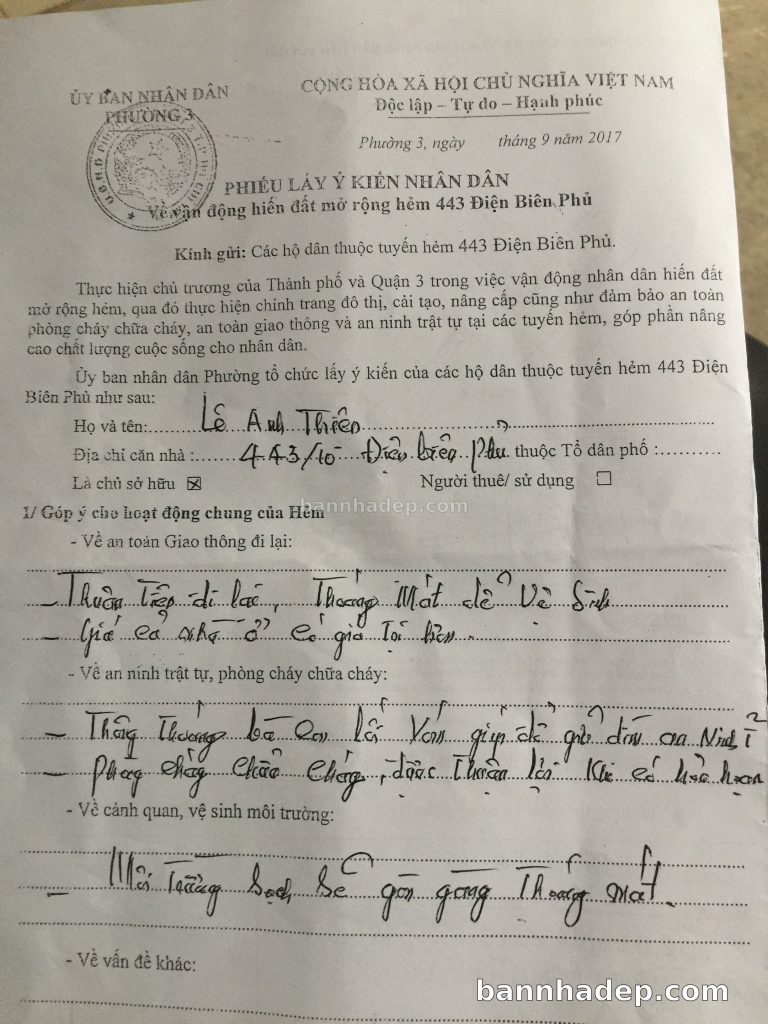 ỦY BAN NHÂN DÂN
PHƯỜNG 3
CỘNG HÒA XÃ HỘI CHỦ NGHĨA VIỆT NAM
Độc lập – Tự do – Hạnh phúc
Phường 3, ngày tháng 9 năm 2017
PHIẾU LẤY Ý KIẾN NHÂN DÂN
Về vận động hiến đất mở rộng hẻm 443 Điện Biên Phủ
Kính gửi: Các hộ dân thuộc tuyến hẻm 443 Điện Biên Phủ.
Thực hiện chủ trương của Thành phố và Quận 3 trong việc vận động nhân dân hiến đất
mở rộng hẻm, qua đó thực hiện chỉnh trang đô thị, cải tạo, nâng cấp cũng như đảm bảo an toàn
phòng cháy chữa cháy, an toàn giao thông và an ninh trật tự tại các tuyến hẻm, góp phần nâng
cao chất lượng cuộc sống cho nhân dân.
Ủy ban nhân dân Phường tổ chức lấy ý kiến của các hộ dân thuộc tuyến hẻm 443 Điện
Biên Phủ như sau:
Họ và tên: Lê Anh Thiên
Địa chỉ căn nhà : 443/10 Điện biên phủ thuộc Tổ dân phố :
Là chủ sở hữu ☒ Người thuê/ sử dụng ☐
bannhadep.com
1/ Góp ý cho hoạt động chung của Hẻm
- Về an toàn Giao thông đi lại:
- Thuận Tiện đi lại, Thoáng Mát dễ Vệ Sinh
- Giá cả nhà ở có giá Trị hơn.
- Về an ninh trật tự, phòng cháy chữa cháy:
- Thông Thoáng bà con lối giúp đỡ giữ an Ninh
- phòng cháy chữa cháy, được Thuận lợi Khi có hỏa hoạn
- Về cảnh quan, vệ sinh môi trường:
- Môi Trường Sạch Sẽ gọn gàng Thoáng mát.
- Về vấn đề khác:
bannhadep.com